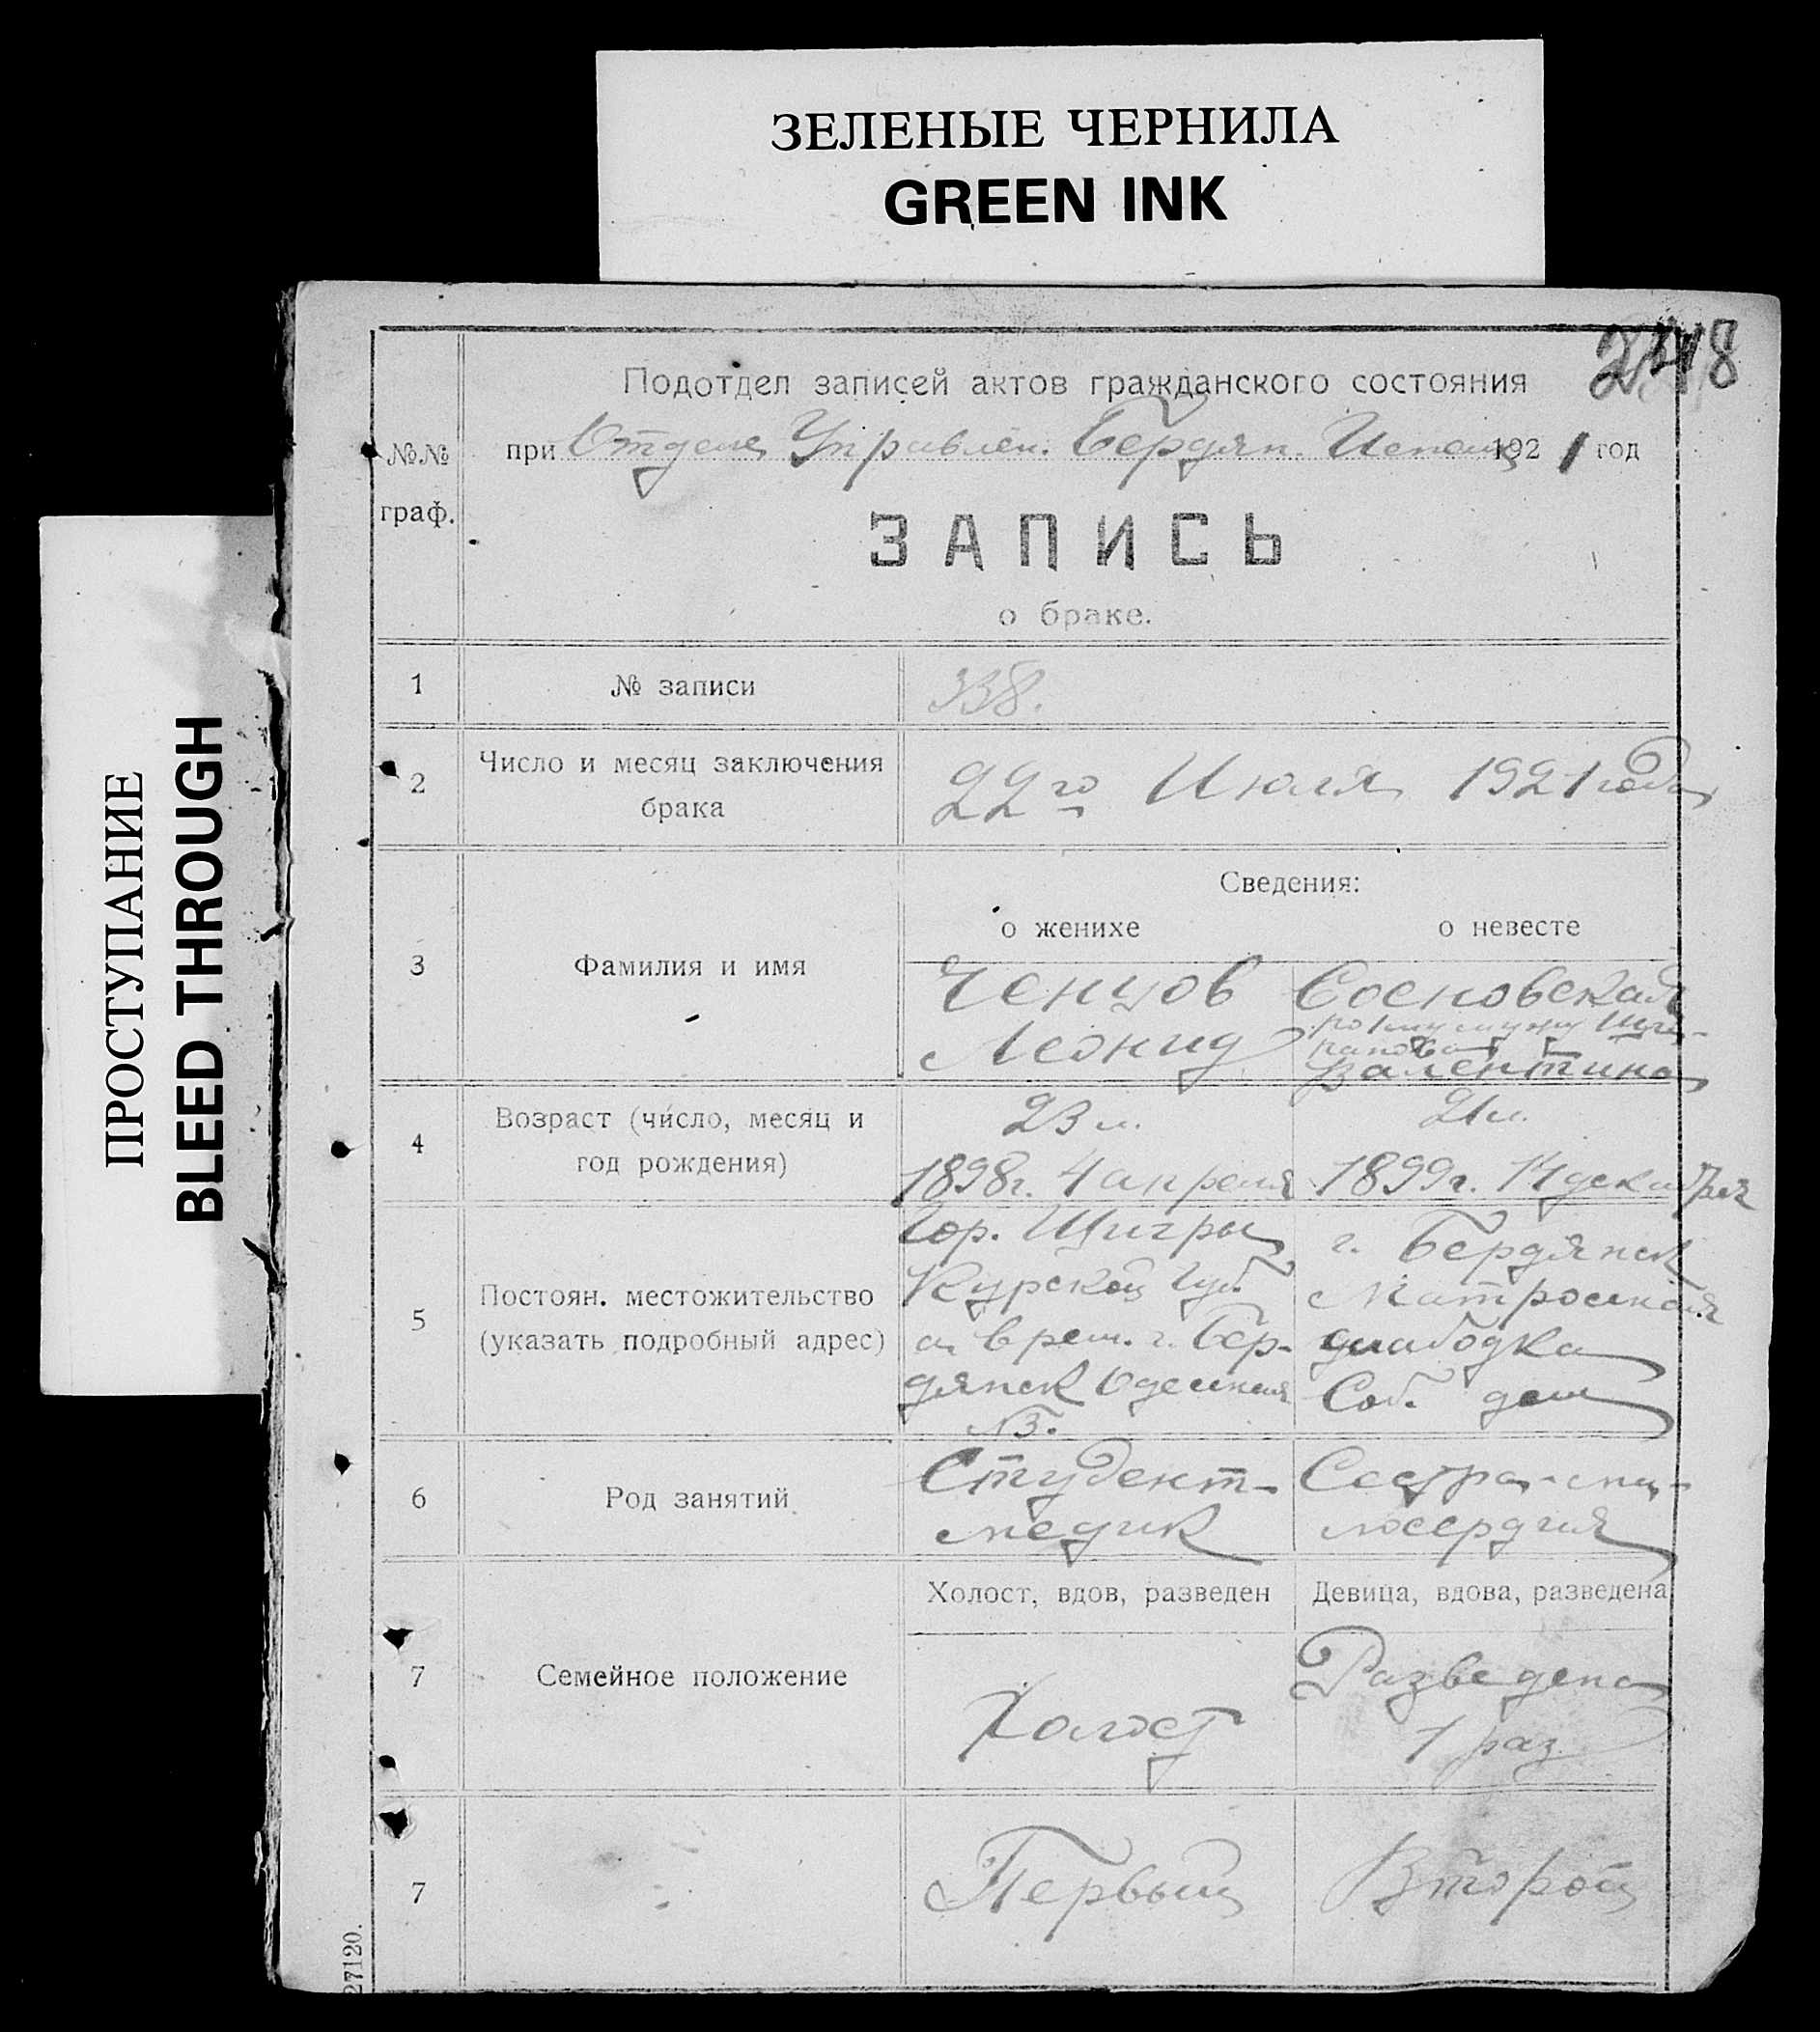 ЗЕЛЕНЫЕ ЧЕРНИЛА
GREEN INK
ПРОСТУПАНИЕ
BLEED THROUGH
Подотдел записей актов гражданского состояния
при Отделе Управлен. Бердян. 1921 год
№№
граф.
ЗАПИСЬ
о браке.
1 № записи 338.
2 Число и месяц заключения
брака
22го Июля 1921 года
Сведения:
о женихе о невесте
3 Фамилия и имя
Ченцов
Леонид
Сосновская
по 1му мужу
Валентина
4 Возраст (число, месяц и
год рождения)
23 л.
1898г. 4 апреля
21 л.
1899г. 14 декабря
5 Постоян. местожительство
(указать подробный адрес)
Гор. Щигры
Курской губ.
а врем. г. Бер-
дянск Одесская
№3.
г. Бердянск
Матросская
слабодка
Соб. дом
6 Род занятий
Студент-
медик
Сестра-ми-
лосердия
7 Семейное положение
Холост, вдов, разведен
Холост
Девица, вдова, разведена
Разведена
1 раз
7 Первый Второй
27120.